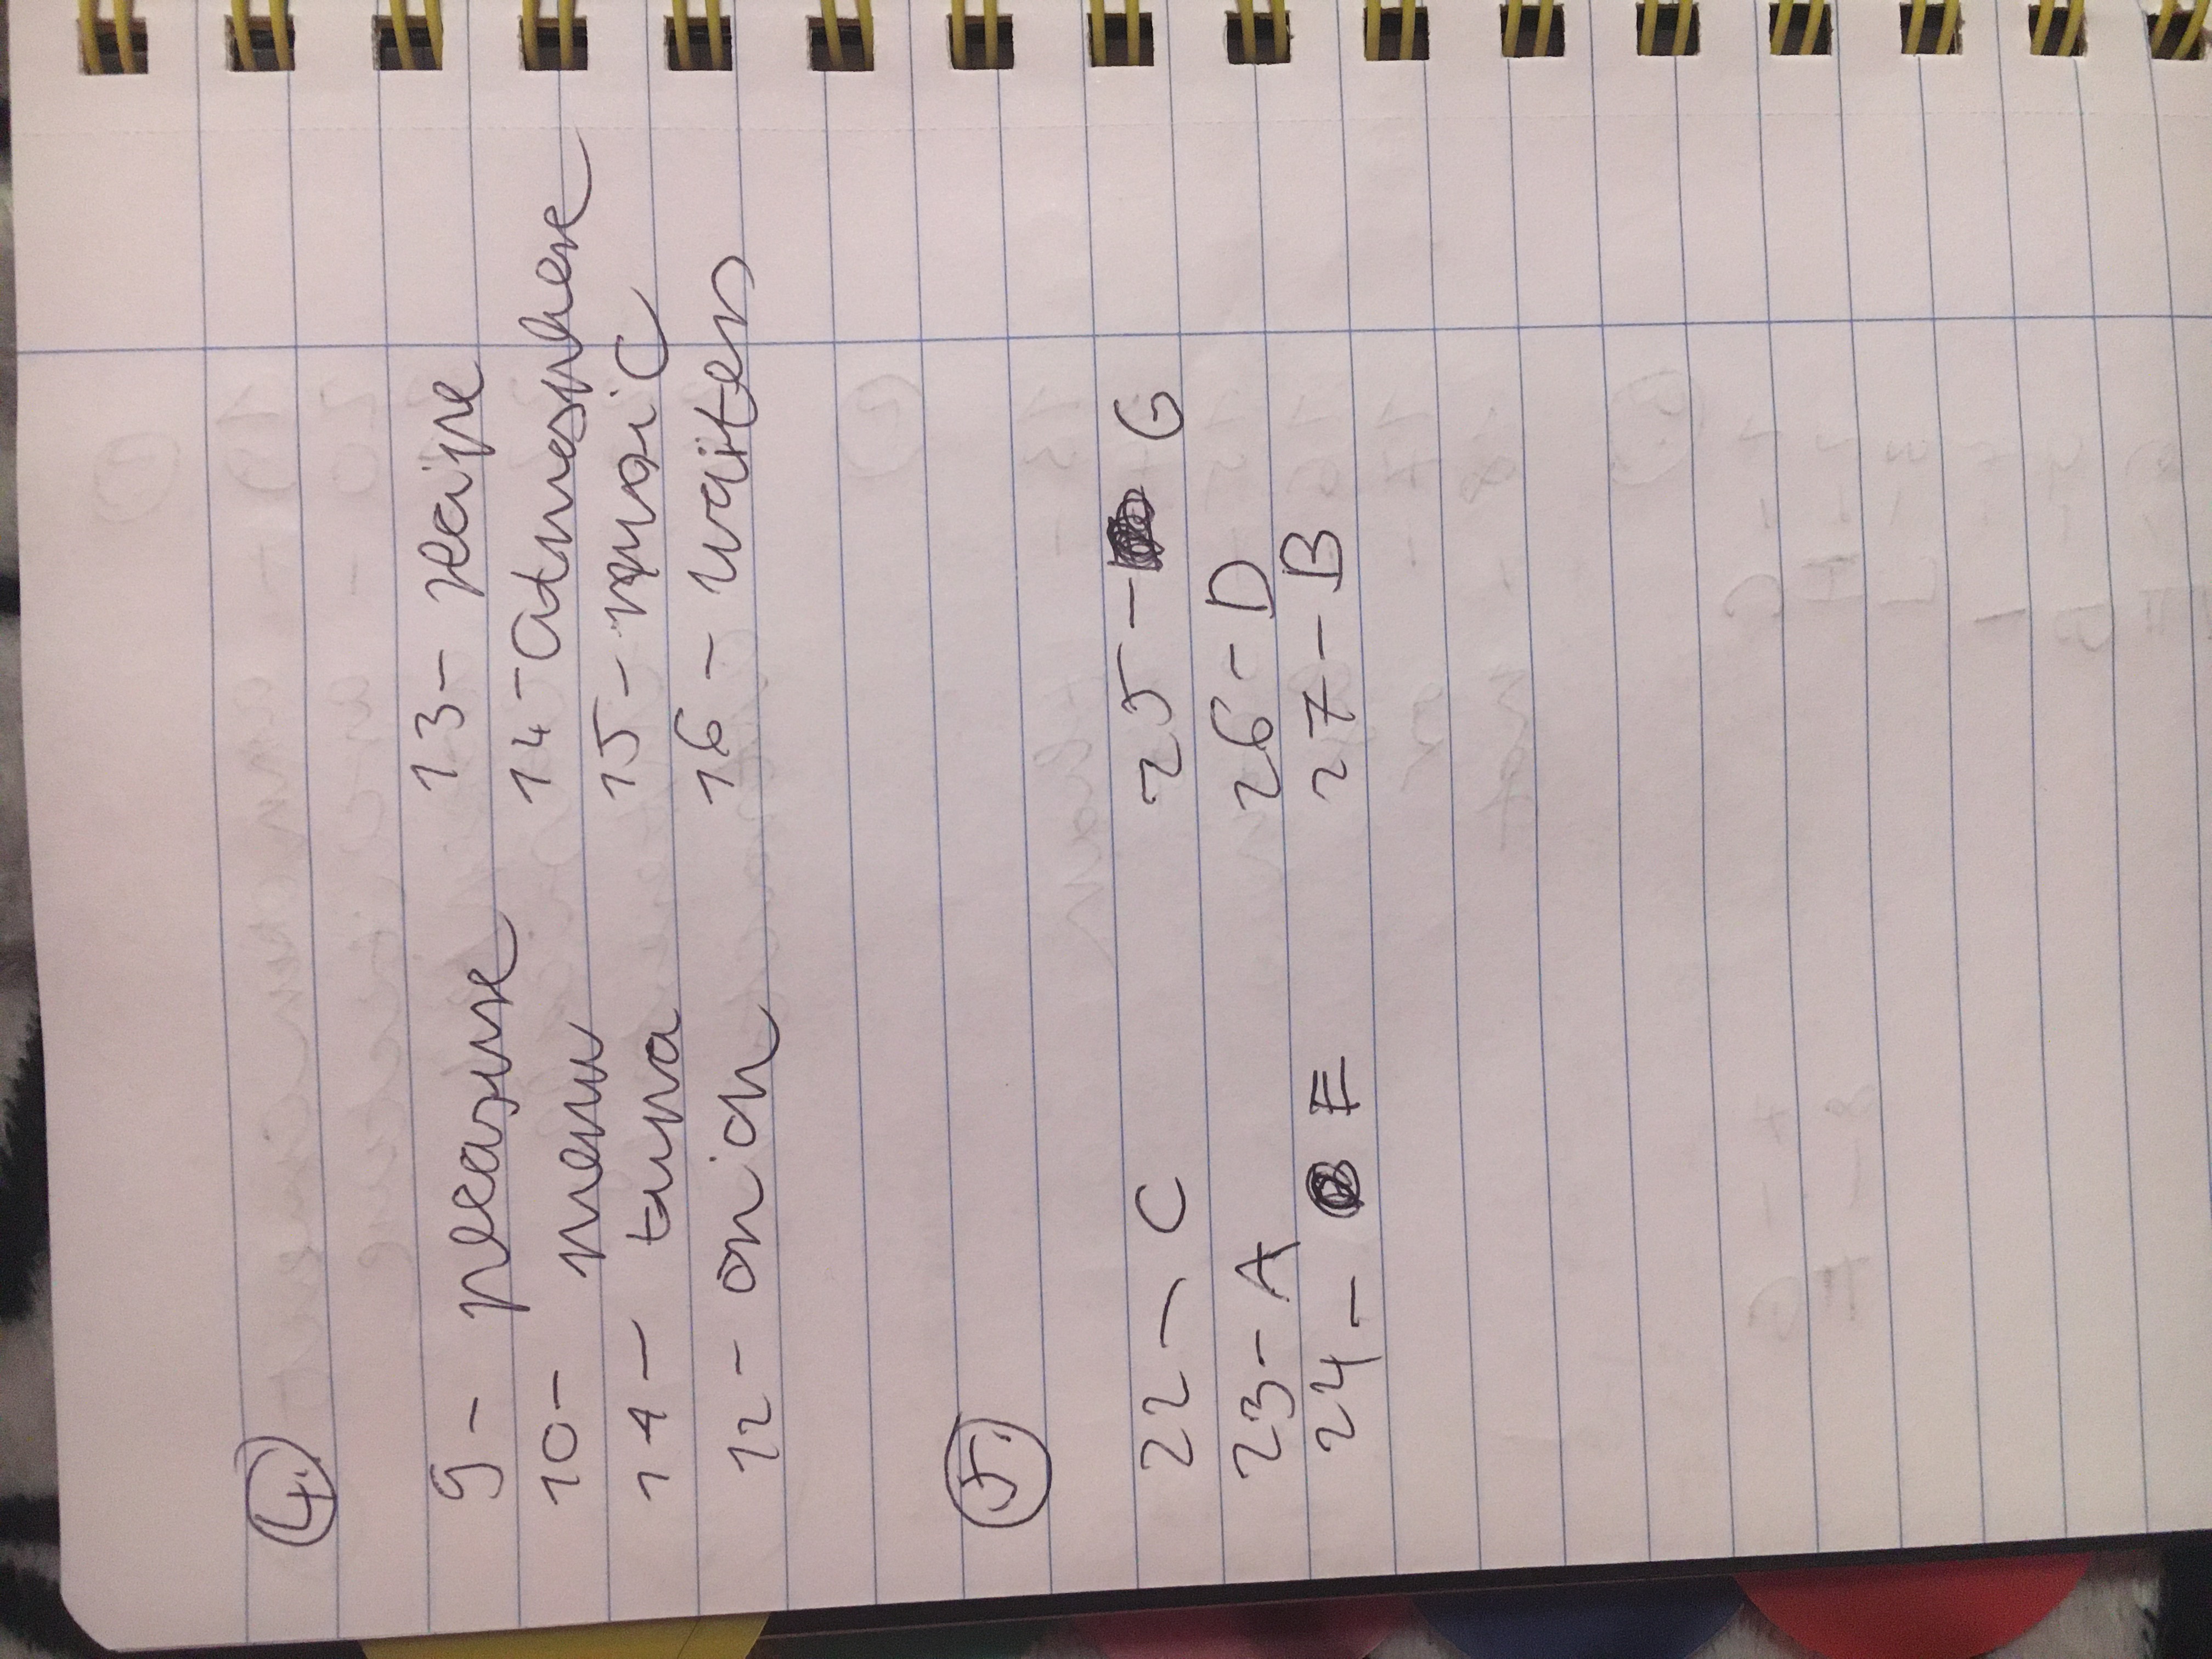 4.
9 - pleasure 13 - recipe
10 - menu 14 - atmosphere
11 - tuna 15 - music
12 - onion 16 - waiters
5.
22 - C 25 - G
23 - A 26 - D
24 - F 27 - B